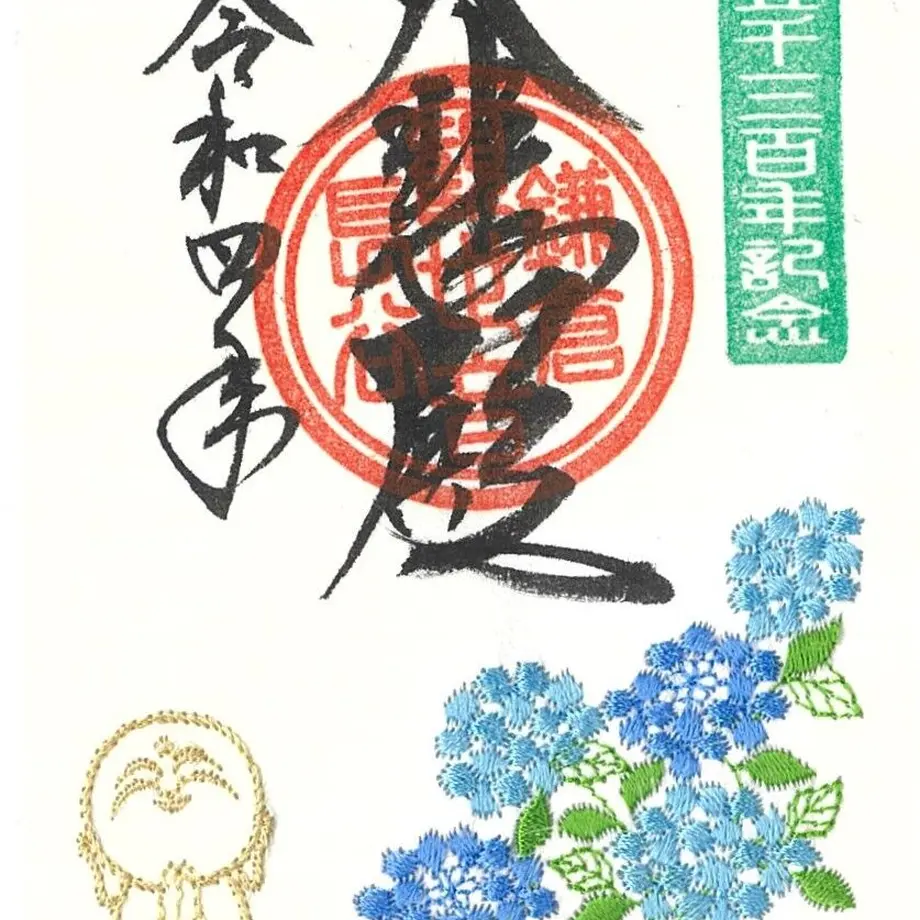 千三百年記念
悲殿
鎌倉
長谷
令和四年